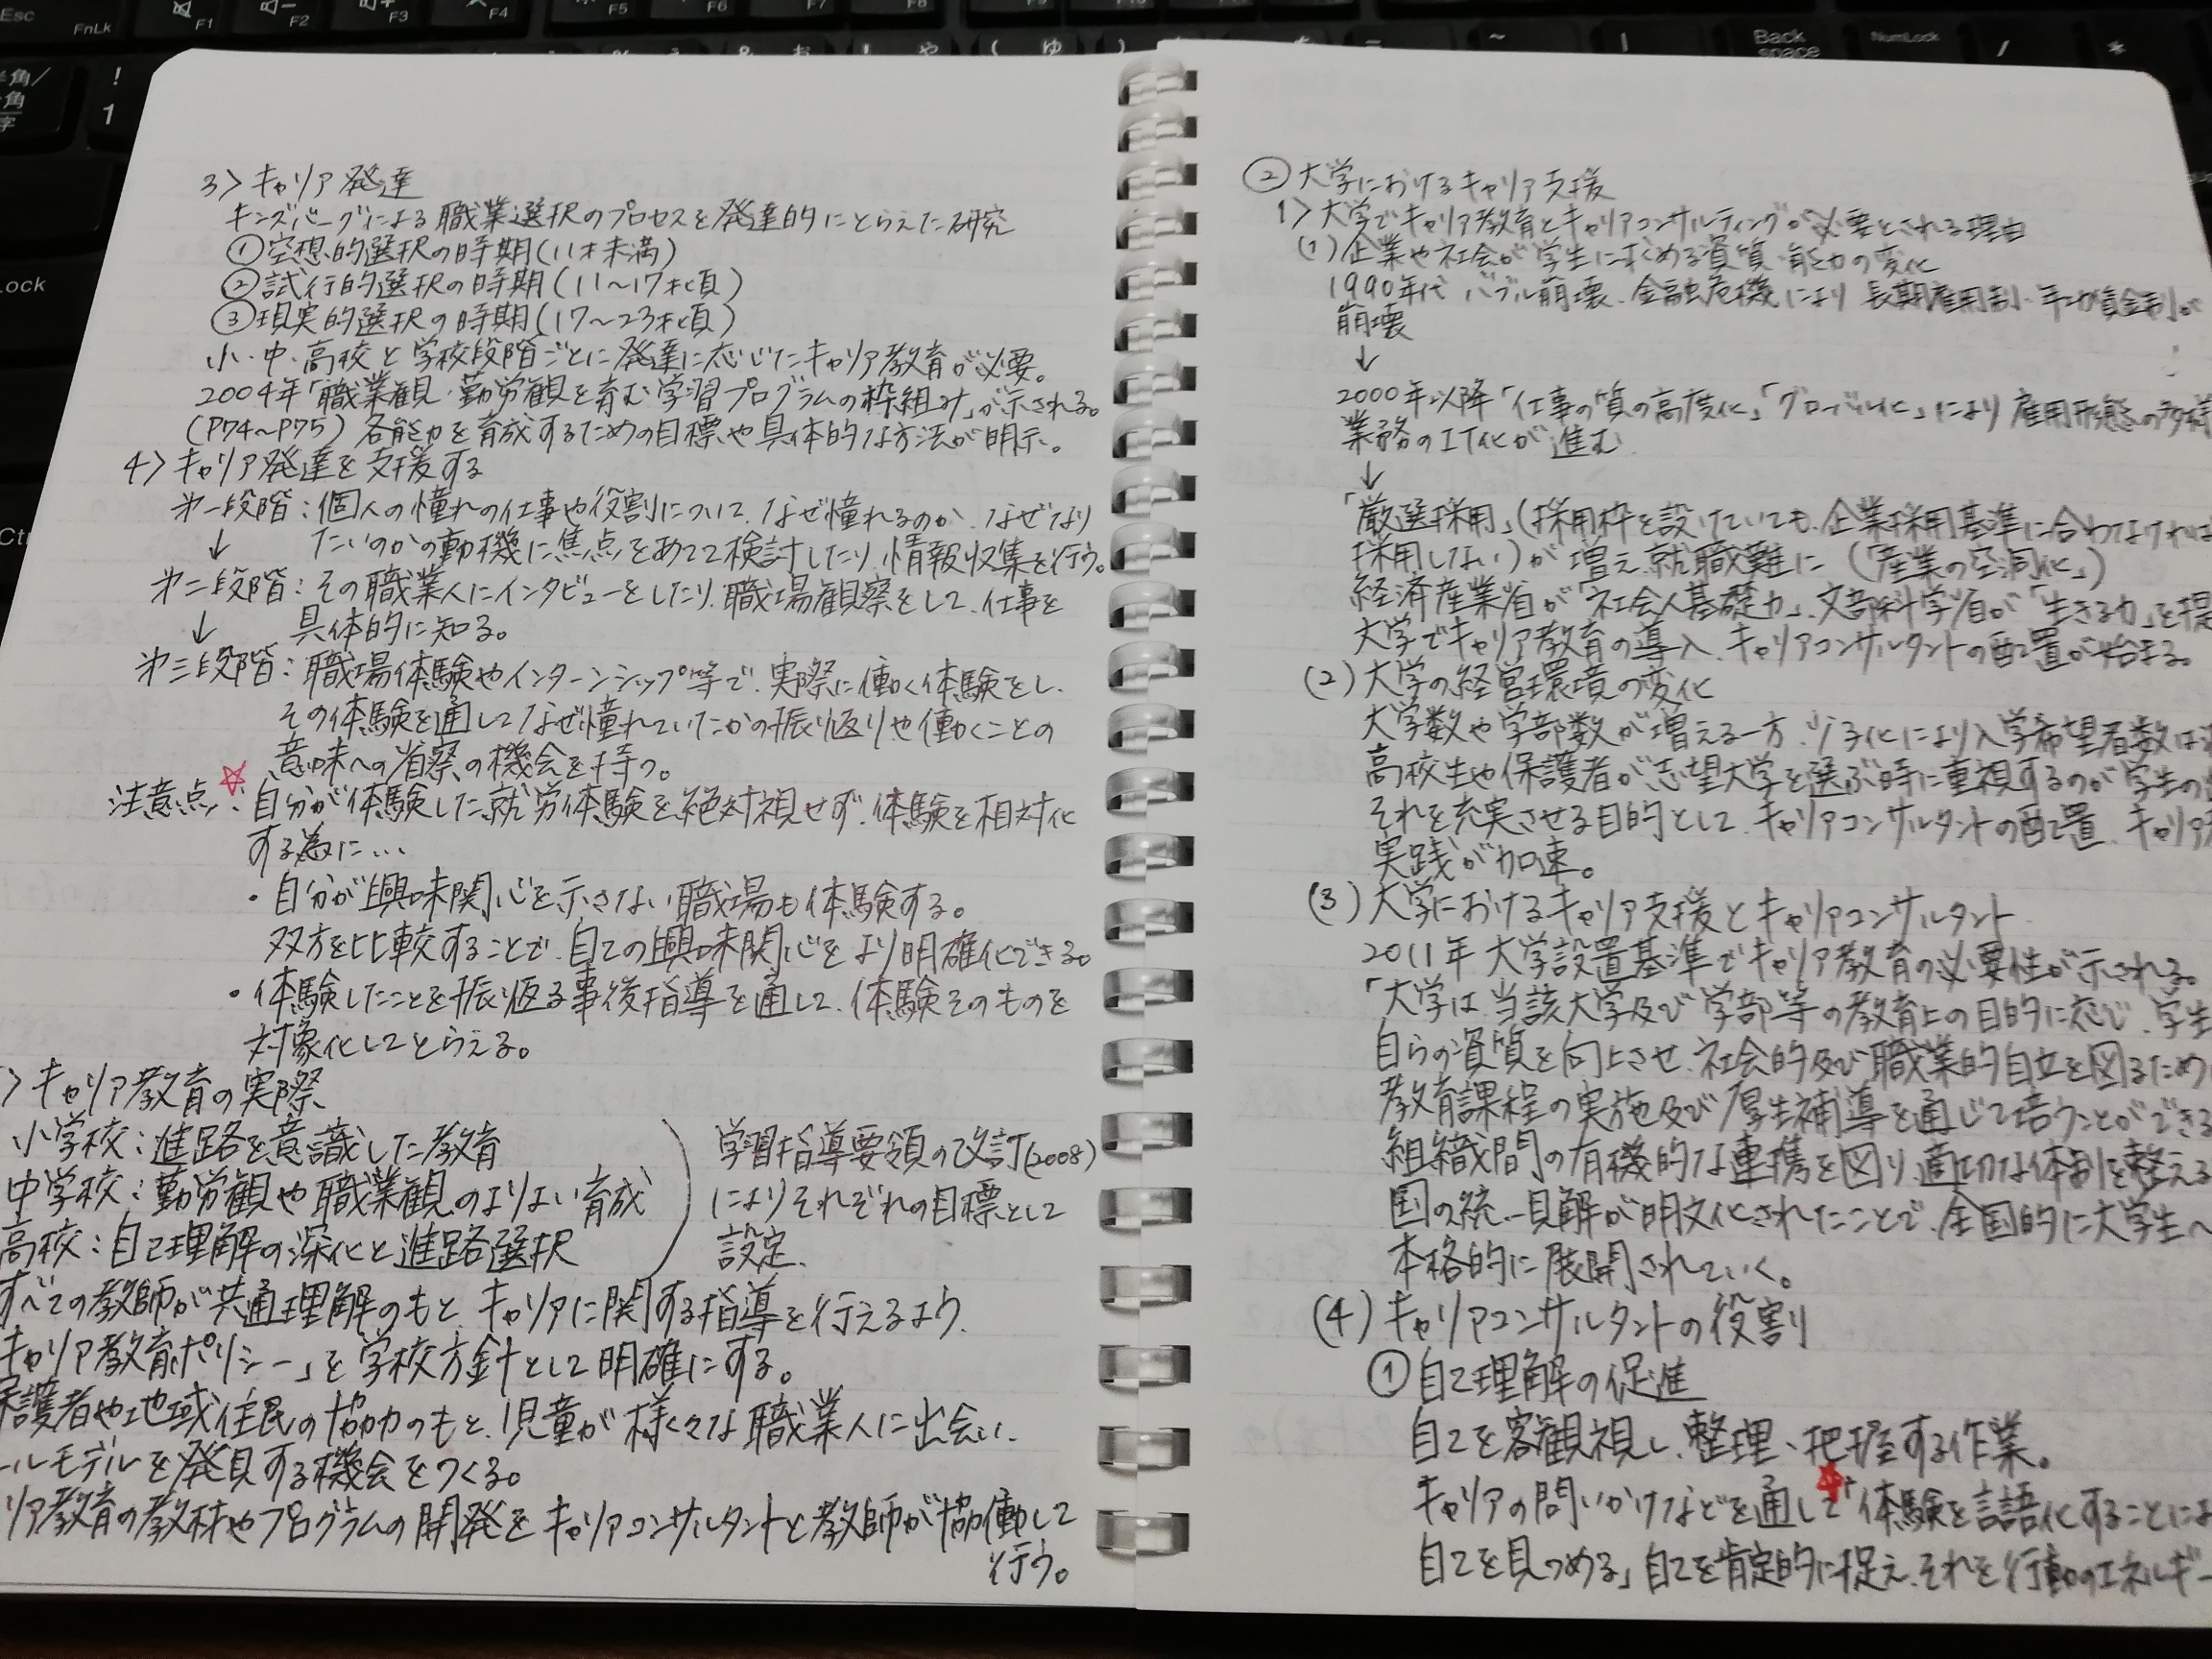 Esc
FnLk
F1
F2
F3
F4
F5
F6
F7
F8
Back
space
NumLock
/
*
!
1
半角/
全角
Lock
Ctrl
3> キャリア発達
キンズバーグによる職業選択のプロセスを発達的にとらえた研究
①空想的選択の時期(11才未満)
②試行的選択の時期(11～17才頃)
③現実的選択の時期(17～23才頃)
小・中・高校と学校段階ごとに発達に応じたキャリア教育が必要。
2004年「職業観・勤労観を育む学習プログラムの枠組み」が示される。
(P74～P75) 各能力を育成するための目標や具体的な方法が明示。
4> キャリア発達を支援する
第一段階：個人の憧れの仕事や役割について、なぜ憧れるのか、なぜなり
たいのかの動機に焦点をあてて検討したり、情報収集を行う。
↓
第二段階：その職業人にインタビューをしたり、職場観察をして、仕事を
具体的に知る。
↓
第三段階：職場体験やインターンシップ等で、実際に働く体験をし、
その体験を通してなぜ憧れていたかの振り返りや働くことの
意味への省察の機会を持つ。
注意点☆：自分が体験した就労体験を絶対視せず、体験を相対化
する為に…
・自分が興味関心を示さない職場も体験する。
双方を比較することで、自己の興味関心をより明確化できる。
・体験したことを振り返る事後指導を通して、体験そのものを
対象化してとらえる。
> キャリア教育の実際
小学校：進路を意識した教育
中学校：勤労観や職業観のよりよい育成
高校：自己理解の深化と進路選択
学習指導要領の改訂(2008)
によりそれぞれの目標として
設定。
すべての教師が共通理解のもと、キャリアに関する指導を行えるよう、
キャリア教育ポリシー」を学校方針として明確にする。
保護者や地域住民の協力のもと、児童が様々な職業人に出会い、
ールモデルを発見する機会をつくる。
リア教育の教材やプログラムの開発をキャリアコンサルタントと教師が協働して
行う。
② 大学におけるキャリア支援
1> 大学でキャリア教育とキャリアコンサルティングが必要とされる理由
(1) 企業や社会が学生に求める資質・能力の変化
1990年代 バブル崩壊、金融危機により 長期雇用制・年功賃金制が
崩壊
↓
2000年以降「仕事の質の高度化」「グローバル化」により 雇用形態の多様
業務のIT化が進む
↓
「厳選採用」(採用枠を設けていても、企業採用基準に合わなければ
採用しない)が増え、就職難に(「産業の空洞化」)
経済産業省が「社会人基礎力」、文部科学省が「生きる力」を提
大学でキャリア教育の導入、キャリアコンサルタントの配置が始まる。
(2) 大学の経営環境の変化
大学数や学部数が増える一方、少子化により入学希望者数は
高校生や保護者が志望大学を選ぶ時に重視するのが学生の
それを充実させる目的として、キャリアコンサルタントの配置、キャリア
実践が加速。
(3) 大学におけるキャリア支援とキャリアコンサルタント
2011年 大学設置基準でキャリア教育の必要性が示される。
「大学は、当該大学及び学部等の教育上の目的に応じ、学生
自らの資質を向上させ、社会的及び職業的自立を図るため
教育課程の実施及び厚生補導を通じて培うことができる
組織間の有機的な連携を図り、適切な体制を整える
国の統一見解が明文化されたことで、全国的に大学生へ
本格的に展開されていく。
(4) キャリアコンサルタントの役割
① 自己理解の促進
自己を客観視し、整理、把握する作業。
キャリアの問いかけなどを通して☆「体験を言語化することによ
自己を見つめる」自己を肯定的に捉え、それを行動のエネルギー